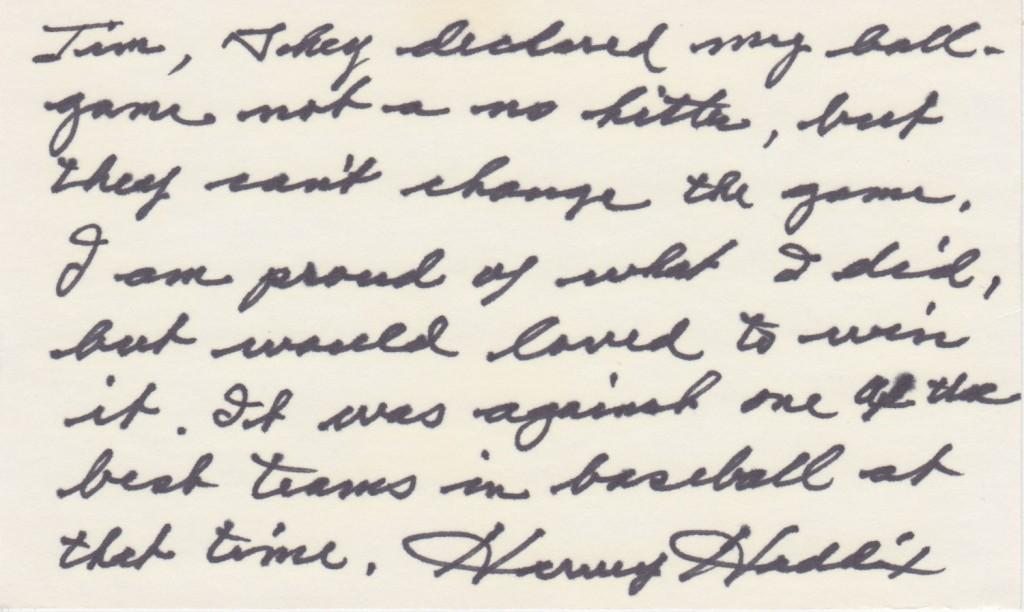 Tim, They declared my ball-
game not a no hitter, but
they can't change the game.
I am proud of what I did,
but would loved to win
it. It was against one of the
best teams in baseball at
that time. Harvey Haddix